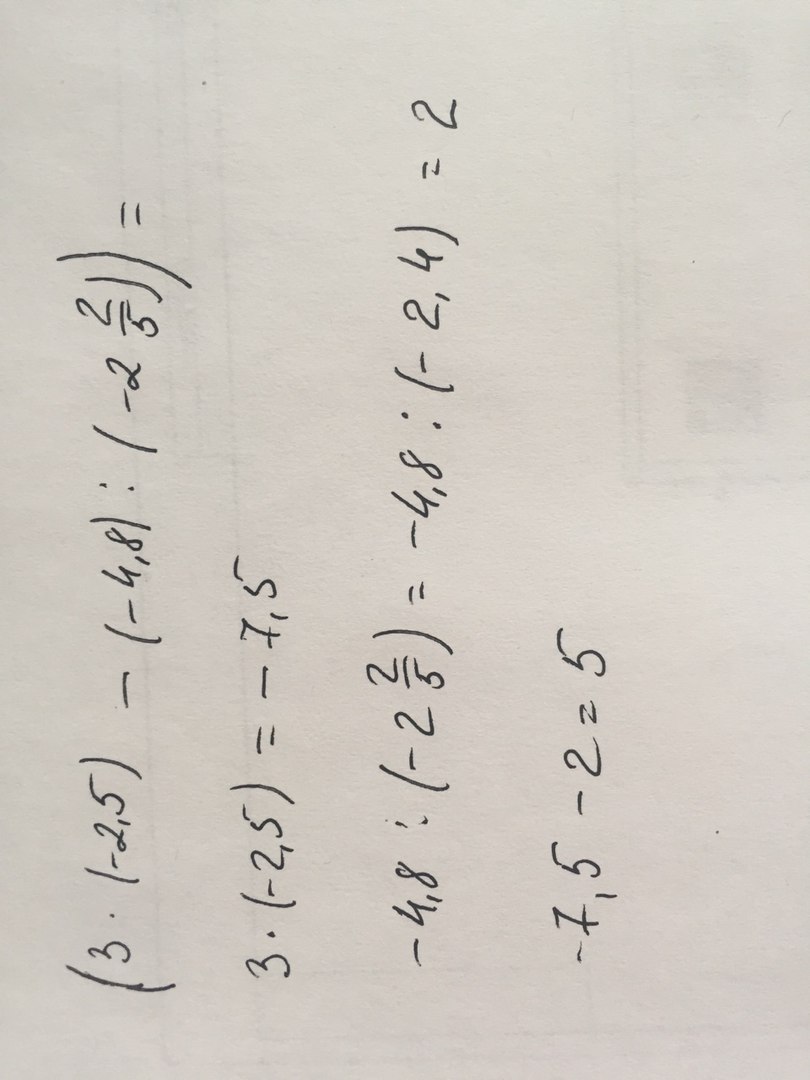 (3 · (-2,5) - (-4,8) : (-2 2/5)) =
3 · (-2,5) = -7,5
-4,8 : (-2 2/5) = -4,8 : (-2,4) = 2
-7,5 - 2 = 5